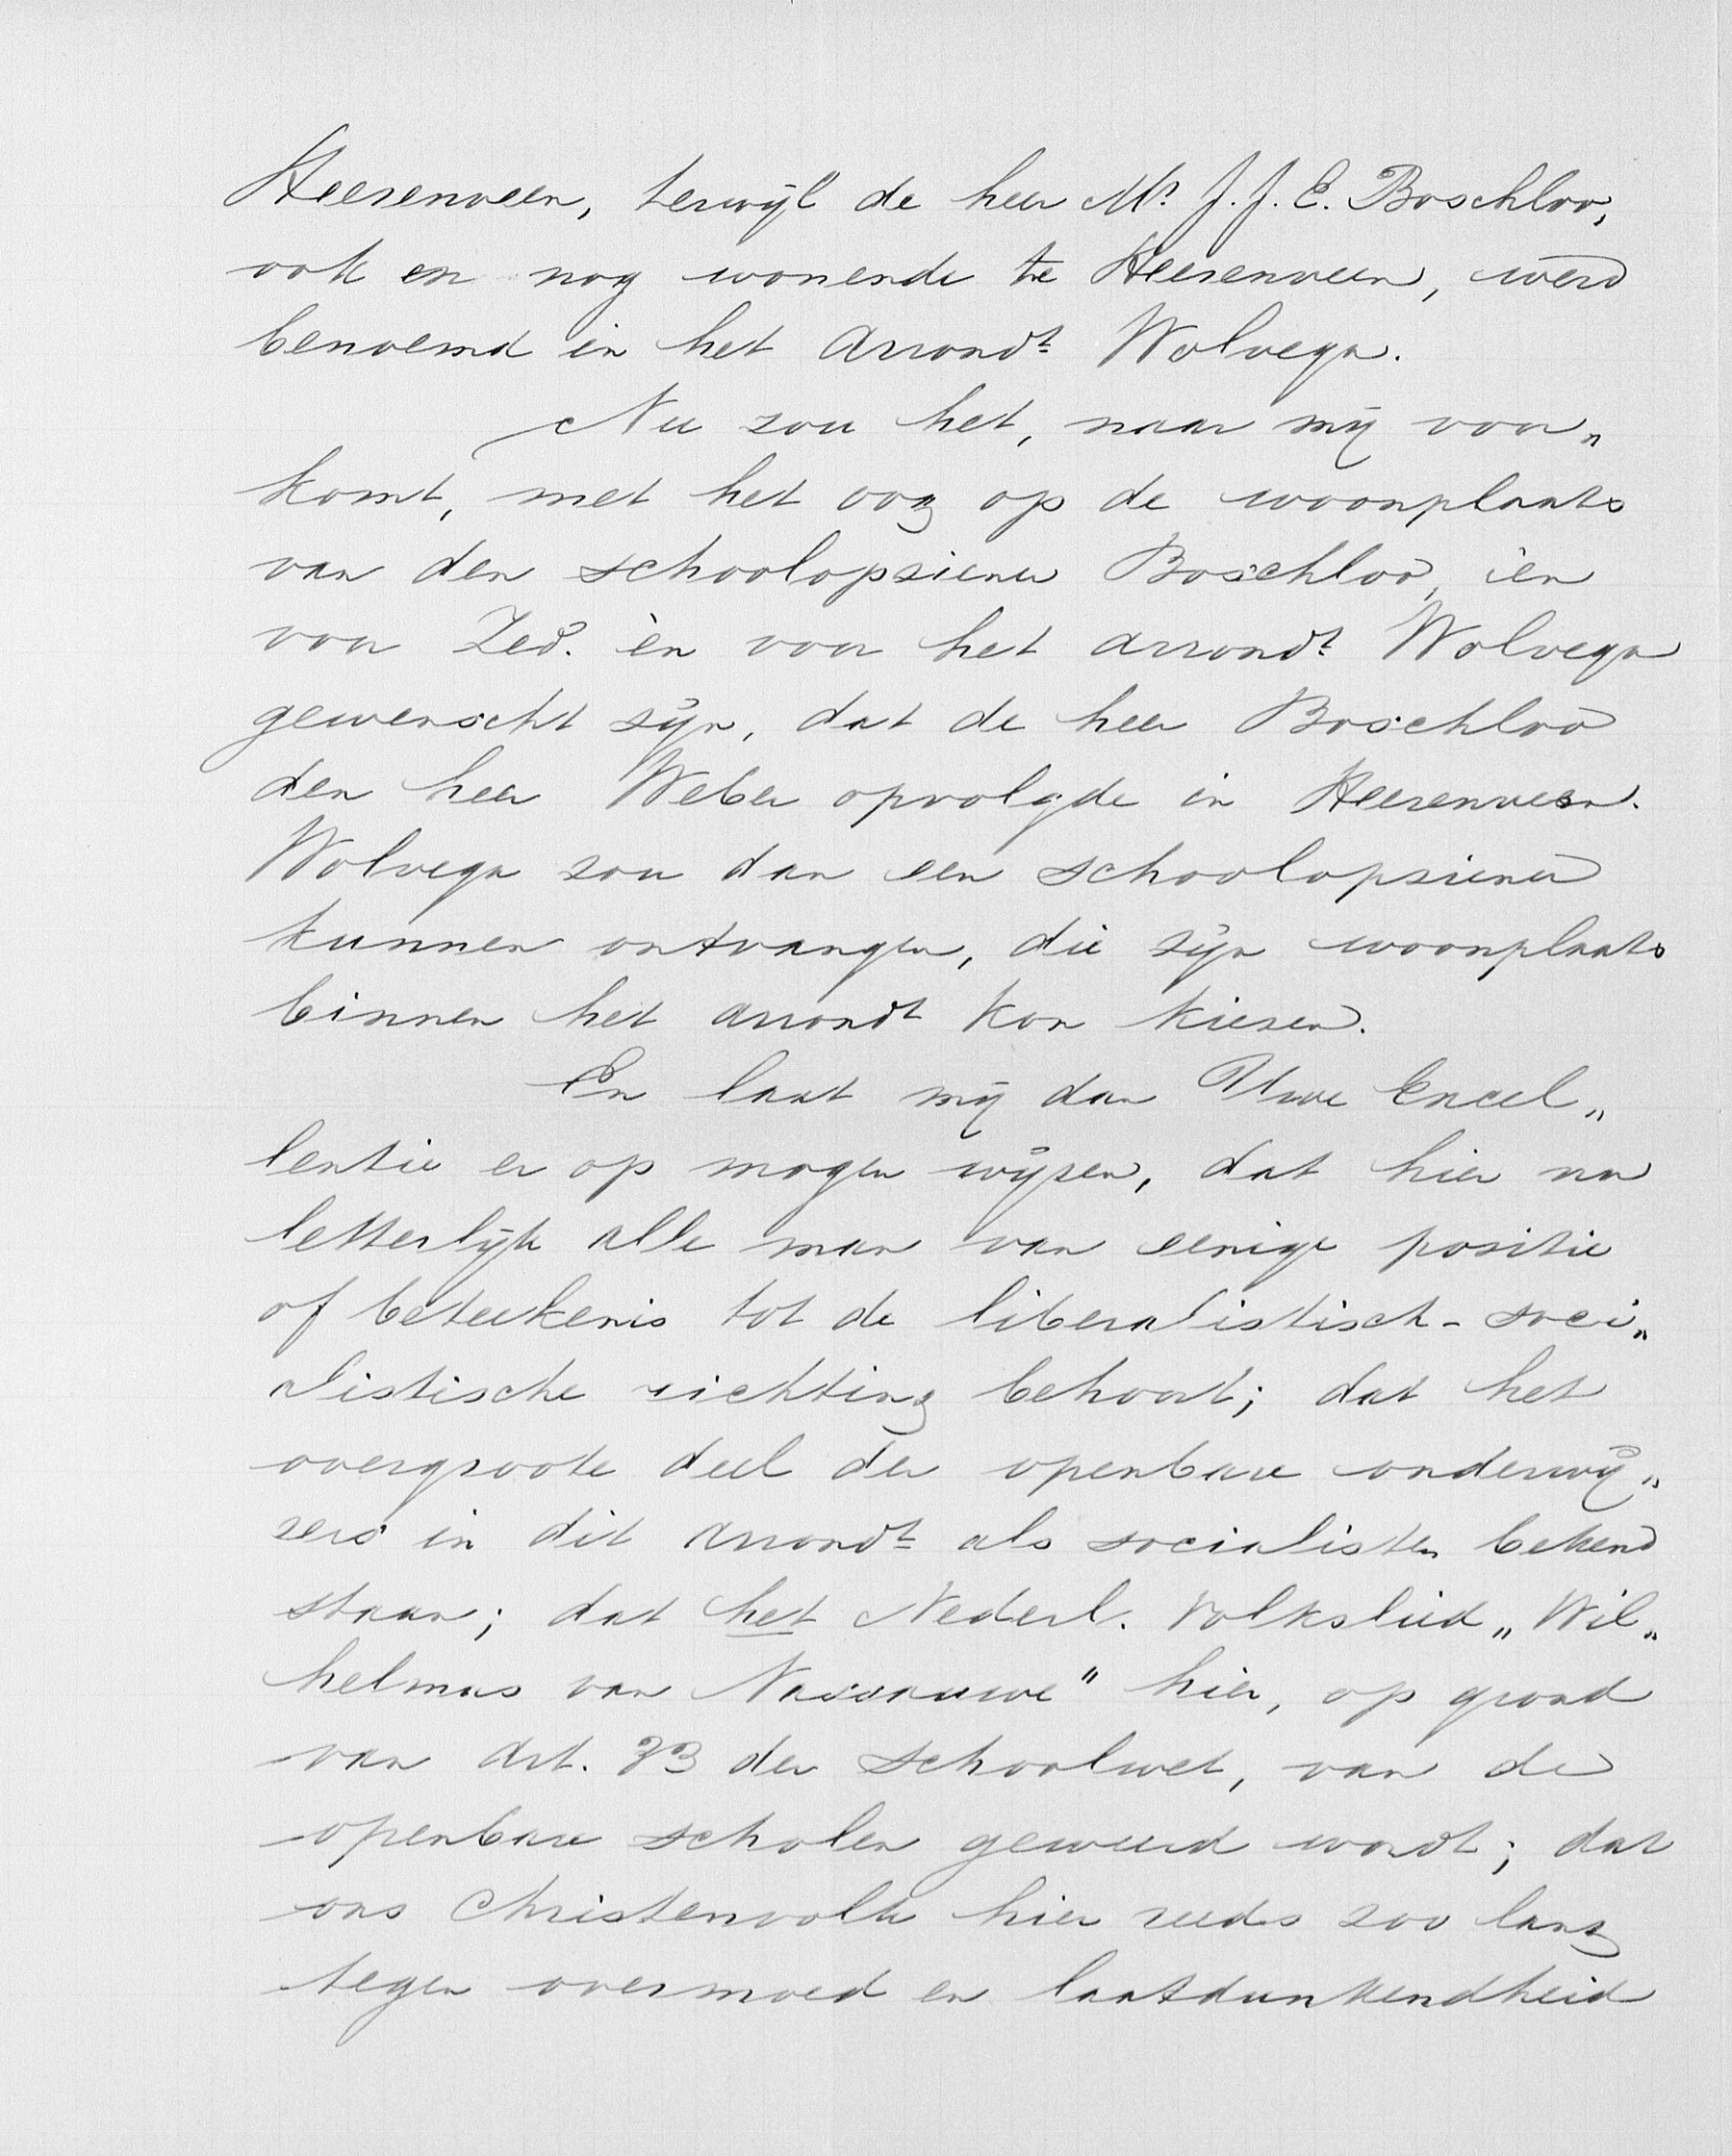 Heerenveen, terwijl de heer Mr. J. J. E. Boschloo,
ook en nog wonende te Heerenveen, werd
benoemd in het Arrondt. Wolvega.
Nu zou het, naar mij voor„
komt, met het oog op de woonplaats
van den schoolopziener Boschloo, èn
voor Zed. èn voor het arrondt. Wolvega
gewenscht zijn, dat de heer Boschloo
den heer Weber opvolgde in Heerenveen.
Wolvega zou dan een schoolopziener
kunnen ontvangen, die zijn woonplaats
binnen het arrondt kon kiezen.
En laat mij dan Uwe Excel„
lentie er op mogen wijzen, dat hier na
letterlijk alle man van eenige positie
of beteekenis tot de liberalistisch-soci„
alistische richting behoort; dat het
overgroote deel der openbare onderwij„
zers in dit arrondt. als socialisten bekend
staan; dat het Nederl. Volkslied „Wil„
helmus van Nassauwe" hier, op grond
van Art. 33 der schoolwet, van de
openbare scholen geweerd wordt; dat
ons Christenvolk hier reeds zoo lang
tegen overmoed en laatdunkendheid